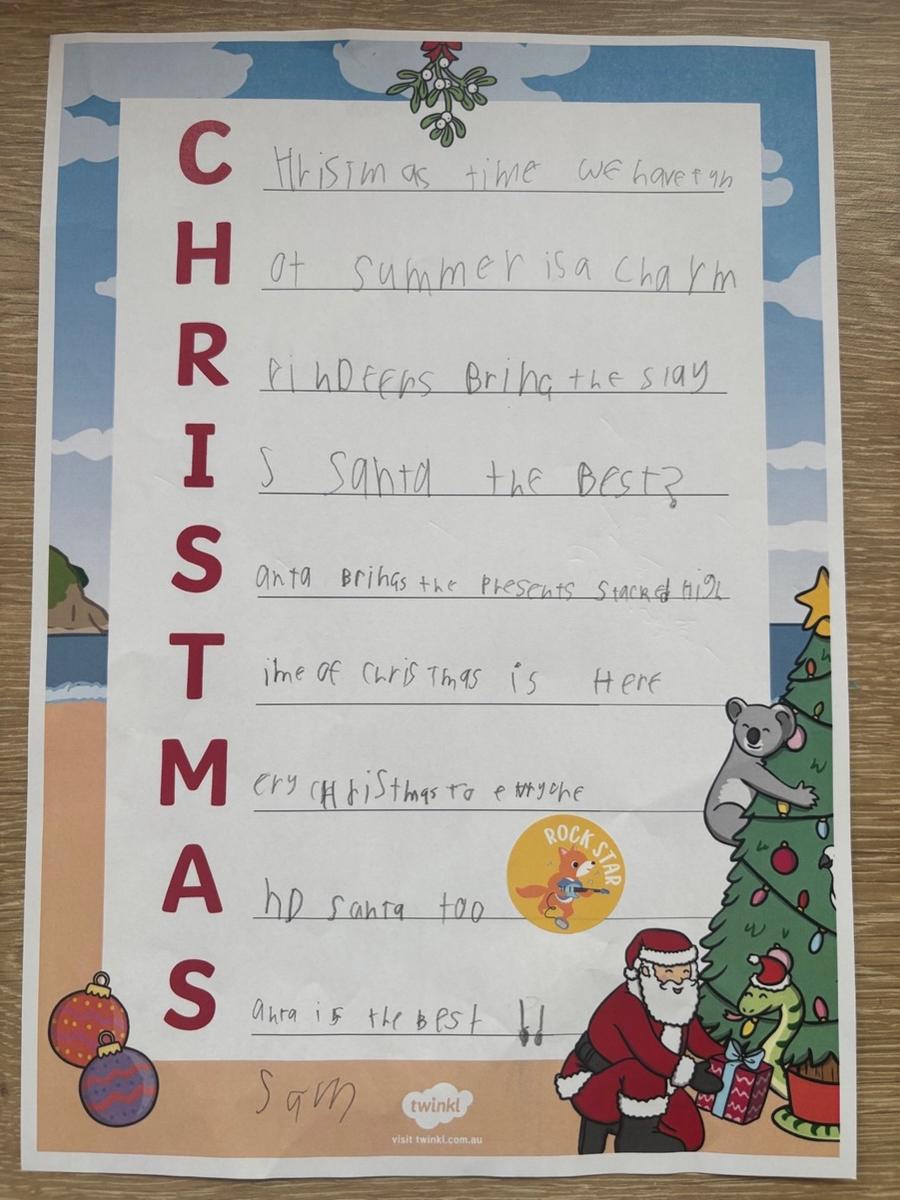 C Hrisimas time we have fun
H ot summer is a charm
R einDeers Bring the slay
I s Santa the Best?
S anta Brings the Presents Stacked High
T ime of Christmas is Here
M ery CHristmas to everyone
A nD Santa too
ROCK STAR
S anta is the Best !!
Sam
twinkl
visit twinkl.com.au